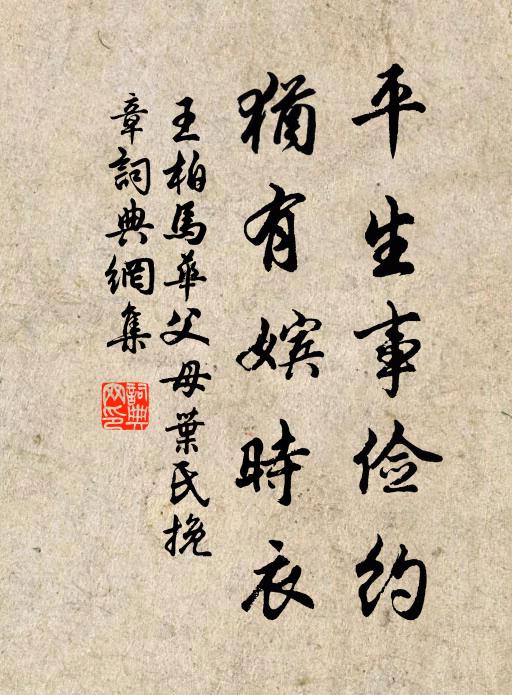 平生事俭约
猶有嬪時衣
王柏馬華父母葉氏挽
章詞典網集
詞典網印